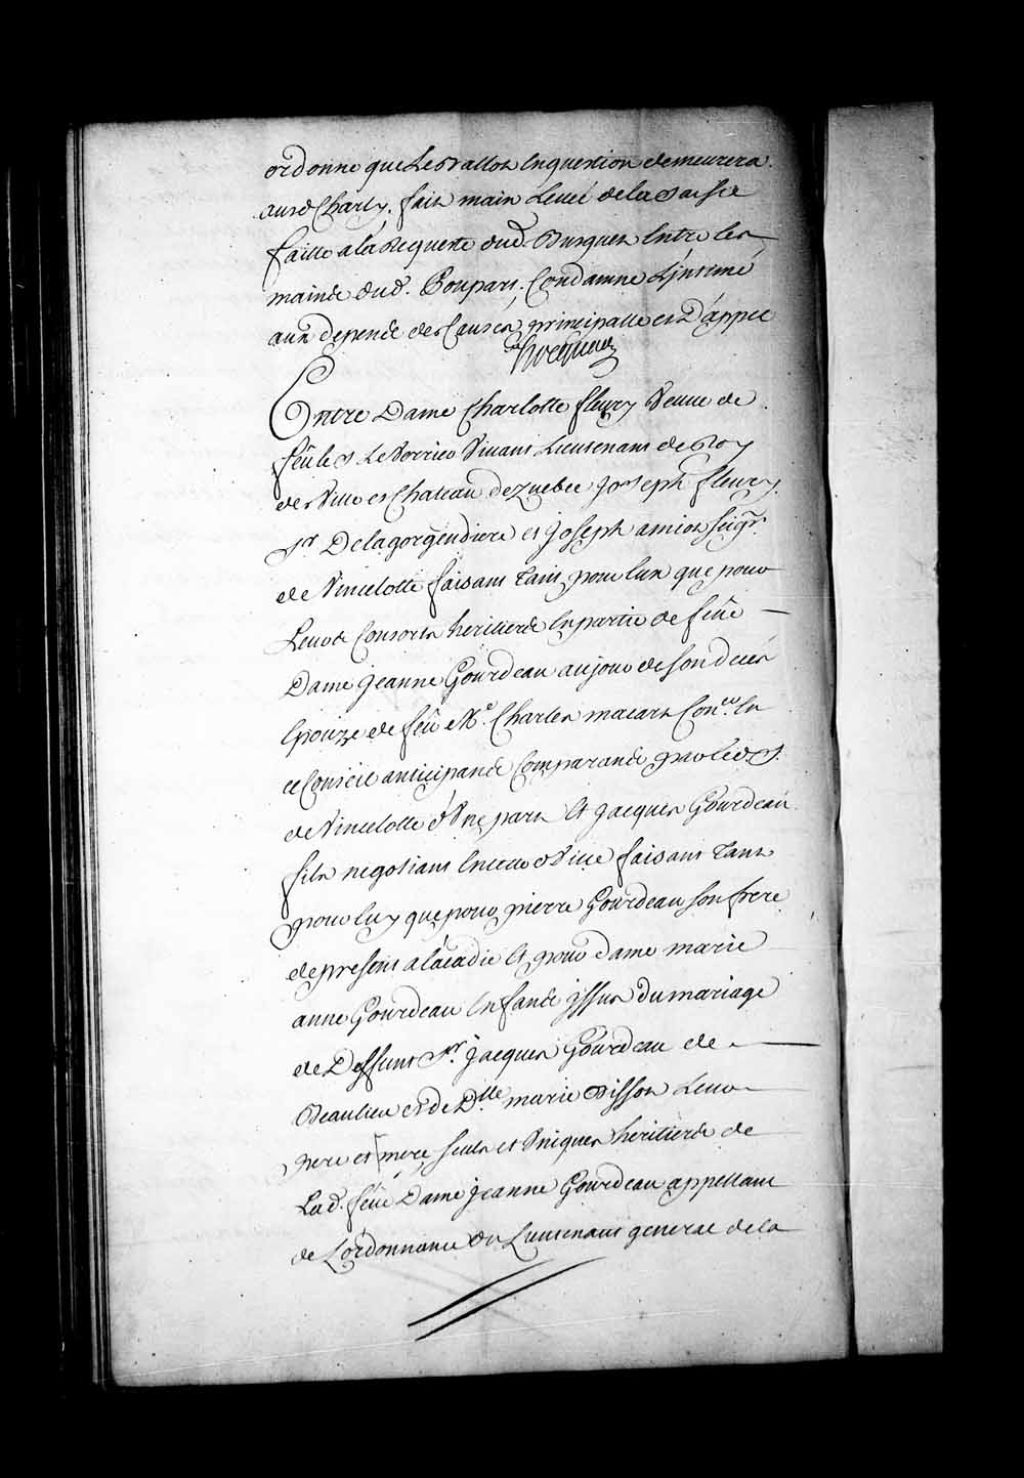 ordonne que Les Vallon En question demeurera
aud Charly. fait main Levée de la Saisie
faitte a la Requeste dud. Burguen Entre les
mains dud. Poupart. Condamne L'jntimé
aux depends des Causes principalle et D'appel
hocquart
Entre Dame Charlotte fleury Veuve de
feu le s Le Verrier Vivant Lieutenant de Roy
des Ville et Chateau de Quebec Joseph fleury
sr Delagorgendiere et Joseph amiot seigr.
de Vincelotte faisant tant pour luy que pour
Leurs Consorts heritiers En partie de feüe
Dame Jeanne Gourdeau au jour de son deces
Epouze de feu Me. Charles macart Coner. En
ce Conseil anticipands Comparands par led s.
de Vincelotte d'Vne part Et Jacques Gourdeau
fils negotiant En cette Ville faisant tant
pour luy que pour pierre Gourdeau son frere
de present a l'acadie Et pour dame marie
anne Gourdeau Enfands jssus du mariage
de Deffunt Sr. Jacques Gourdeau de
Beaulieu et de Dlle marie Bisson Leur
pere et mere, seuls et Vniques heritiers de
Lad. feüe Dame Jeanne Gourdeau appellant
de L'ordonnance du Lieutenant general de la